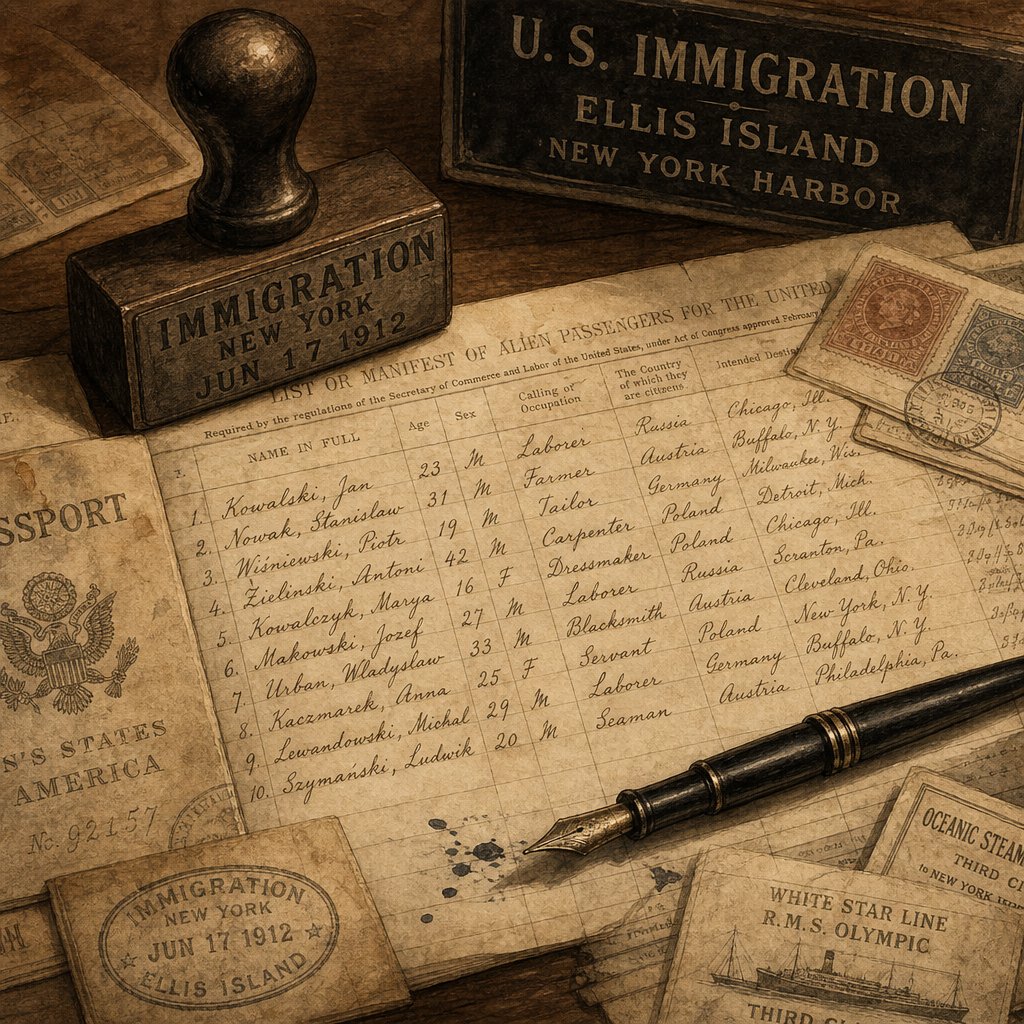 U. S. IMMIGRATION
ELLIS ISLAND
NEW YORK HARBOR
IMMIGRATION
NEW YORK
JUN 17 1912
LIST OR MANIFEST OF ALIEN PASSENGERS FOR THE UNITED
Required by the regulations of the Secretary of Commerce and Labor of the United States, under Act of Congress approved February
NAME IN FULL Age Sex Calling or Occupation The Country of which they are citizens Intended Desti
1. Kowalski, Jan 23 M Laborer Russia Chicago, Ill.
2. Nowak, Stanislaw 31 M Farmer Austria Buffalo, N. Y.
3. Wiśniewski, Piotr 19 M Tailor Germany Milwaukee, Wis.
4. Żielinski, Antoni 42 M Carpenter Poland Detroit, Mich.
5. Kowalczyk, Marya 16 F Dressmaker Poland Chicago, Ill.
6. Makowski, Jozef 27 M Laborer Russia Scranton, Pa.
7. Urban, Wladyslaw 33 M Blacksmith Austria Cleveland, Ohio.
8. Kaczmarek, Anna 25 F Servant Poland New York, N. Y.
9. Lewandowski, Michal 29 M Laborer Germany Buffalo, N. Y.
10. Szymański, Ludwik 20 M Seaman Austria Philadelphia, Pa.
SSPORT
N'S STATES
AMERICA
No. 92157
IMMIGRATION
NEW YORK
JUN 17 1912
ELLIS ISLAND
OCEANIC STEAM
THIRD CL
to NEW YORK
WHITE STAR LINE
R.M.S. OLYMPIC
THIRD CL